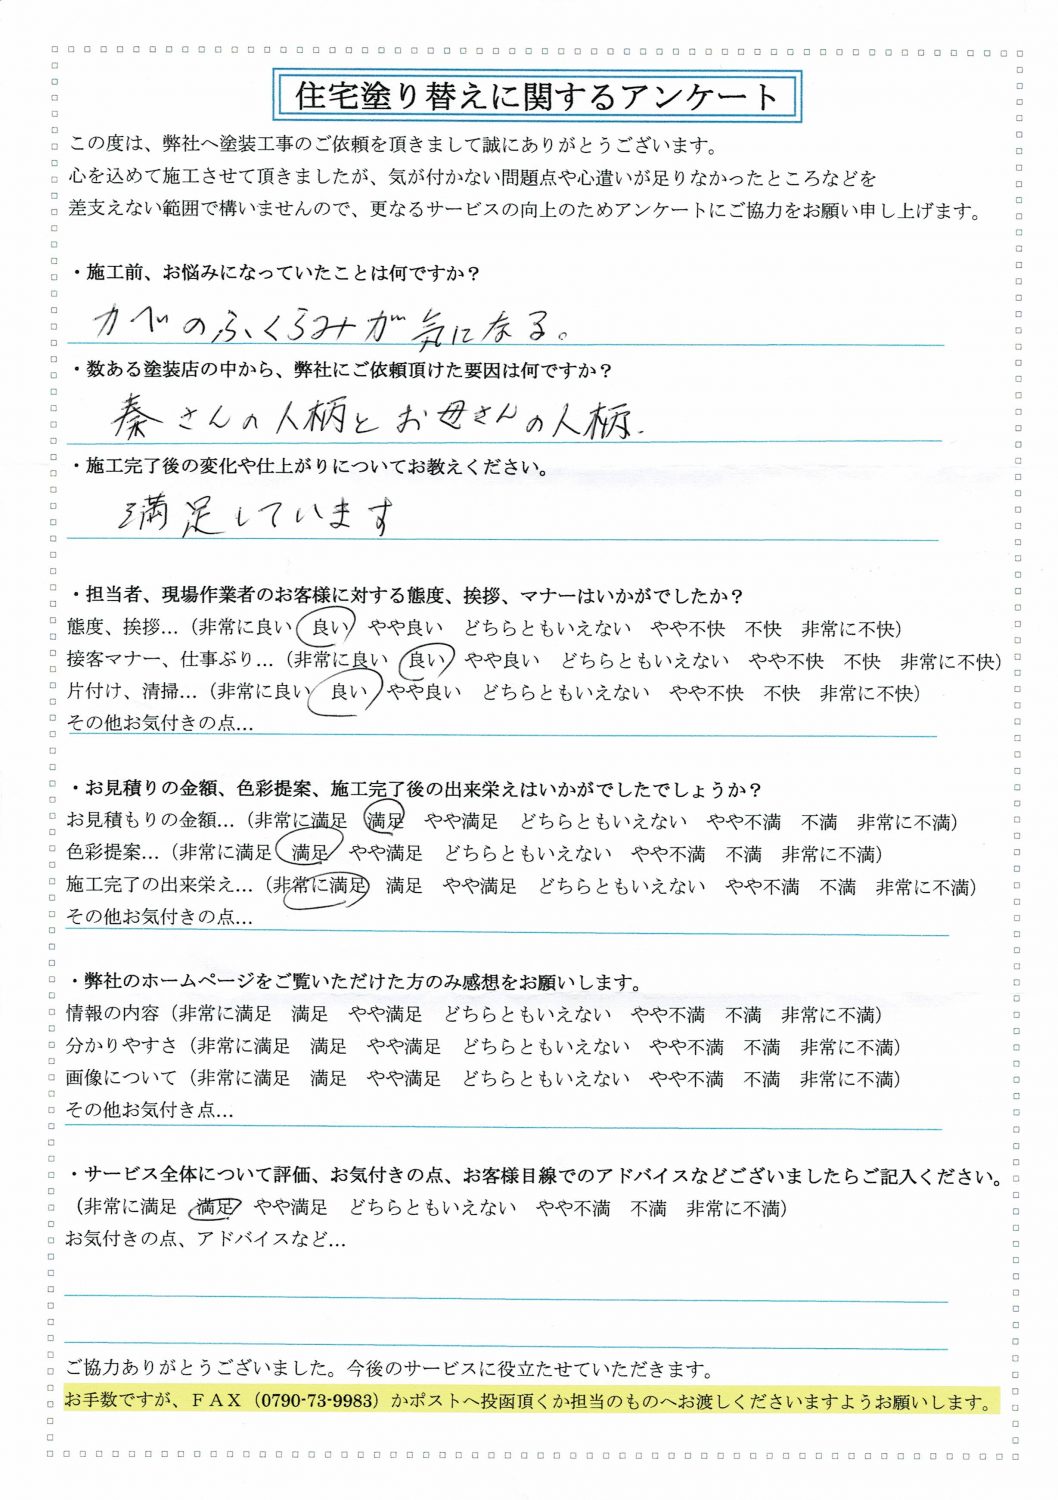 住宅塗り替えに関するアンケート
この度は、弊社へ塗装工事のご依頼を頂きまして誠にありがとうございます。
心を込めて施工させて頂きましたが、気が付かない問題点や心遣いが足りなかったところなどを
差支えない範囲で構いませんので、更なるサービスの向上のためアンケートにご協力をお願い申し上げます。
・施工前、お悩みになっていたことは何ですか？
カベのふくらみが気になる。
・数ある塗装店の中から、弊社にご依頼頂けた要因は何ですか？
秦さんの人柄とお母さんの人柄.
・施工完了後の変化や仕上がりについてお教えください。
満足しています
・担当者、現場作業者のお客様に対する態度、挨拶、マナーはいかがでしたか？
態度、挨拶…（非常に良い　良い　やや良い　どちらともいえない　やや不快　不快　非常に不快）
接客マナー、仕事ぶり…（非常に良い　良い　やや良い　どちらともいえない　やや不快　不快　非常に不快）
片付け、清掃…（非常に良い　良い　やや良い　どちらともいえない　やや不快　不快　非常に不快）
その他お気付きの点…
・お見積りの金額、色彩提案、施工完了後の出来栄えはいかがでしたでしょうか？
お見積もりの金額…（非常に満足　満足　やや満足　どちらともいえない　やや不満　不満　非常に不満）
色彩提案…（非常に満足　満足　やや満足　どちらともいえない　やや不満　不満　非常に不満）
施工完了の出来栄え…（非常に満足　満足　やや満足　どちらともいえない　やや不満　不満　非常に不満）
その他お気付きの点…
・弊社のホームページをご覧いただけた方のみ感想をお願いします。
情報の内容（非常に満足　満足　やや満足　どちらともいえない　やや不満　不満　非常に不満）
分かりやすさ（非常に満足　満足　やや満足　どちらともいえない　やや不満　不満　非常に不満）
画像について（非常に満足　満足　やや満足　どちらともいえない　やや不満　不満　非常に不満）
その他お気付き点…
・サービス全体について評価、お気付きの点、お客様目線でのアドバイスなどございましたらご記入ください。
（非常に満足　満足　やや満足　どちらともいえない　やや不満　不満　非常に不満）
お気付きの点、アドバイスなど…
ご協力ありがとうございました。今後のサービスに役立たせていただきます。
お手数ですが、ＦＡＸ（0790-73-9983）かポストへ投函頂くか担当のものへお渡しくださいますようお願いします。